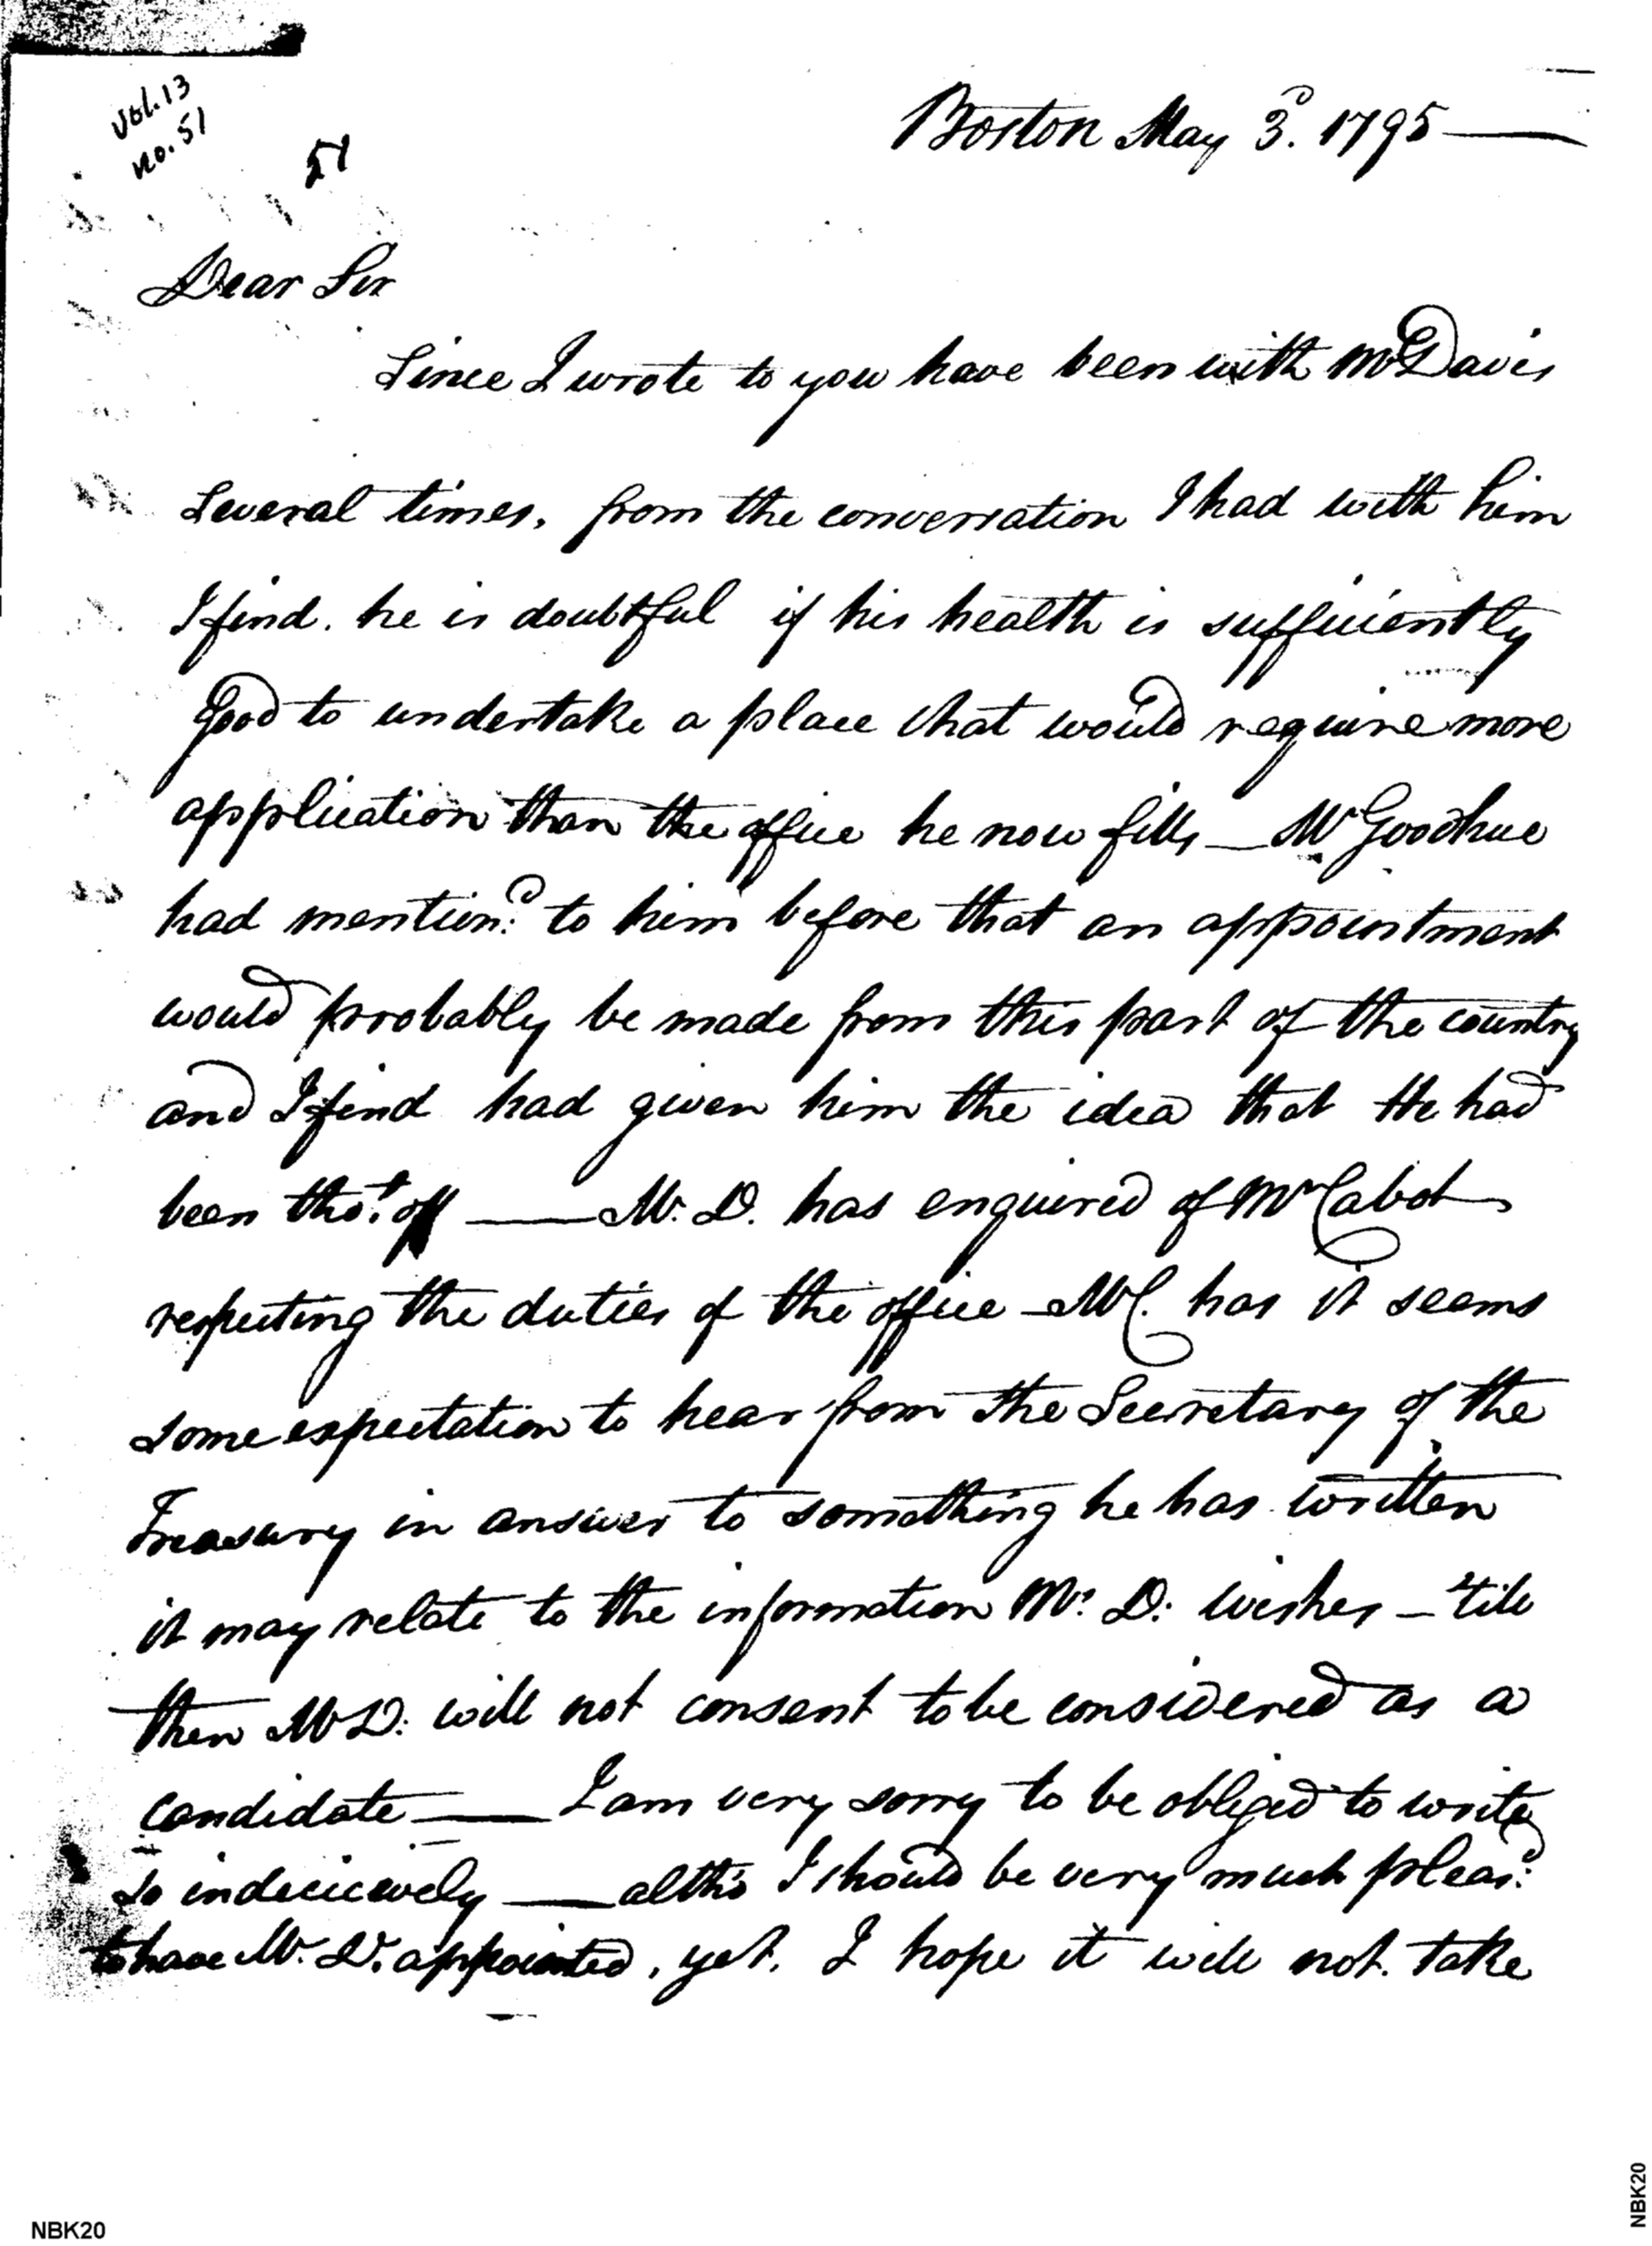 Vol. 13
no. 51
51
Boston May 3d. 1795
Dear Sir
Since I wrote to you have been with Mr Davis
Several times, from the conversation I had with him
I find. he is doubtful if his health is sufficiently
good to undertake a place that would require more
application than the office he now fills — Mr Goodhue
had mention'd to him before that an appointment
would probably be made from this part of the country
and I find had given him the idea that He had
been tho't of — Mr. D. has enquired of Mr Cabot
respecting the duties of the office — Mr C. has it seems
some expectation to hear from the Secretary of the
Treasury in answer to something he has written
it may relate to the information Mr. D. wishes — 'till
then Mr D. will not consent to be considered as a
candidate — I am very sorry to be obliged to write
so indecisively — altho' I should be very much pleas'd
to have Mr. D. appointed, yet, I hope it will not take
NBK20
NBK20